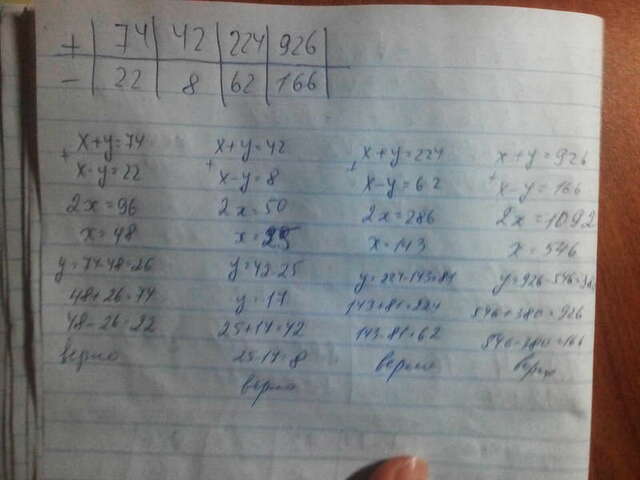 + | 74 | 42 | 224 | 926
− | 22 | 8 | 62 | 166
x+y=74
+
x-y=22
2x=96
x=48
y=74-48=26
48+26=74
48-26=22
верно
x+y=42
+
x-y=8
2x=50
x=25
y=42-25
y=17
25+17=42
25-17=8
верно
x+y=224
+
x-y=62
2x=286
x=143
y=224-143=81
143+81=224
143-81=62
верно
x+y=926
+
x-y=166
2x=1092
x=546
y=926-546=380
546+380=926
546-380=166
верно